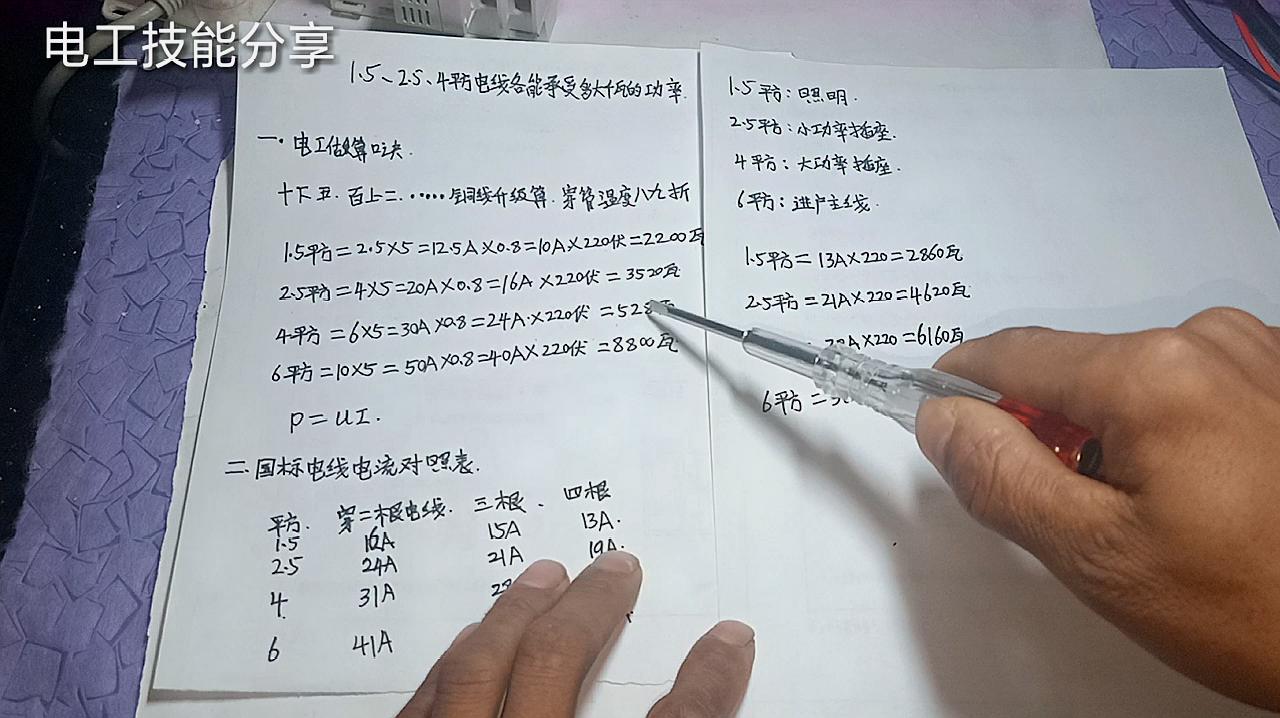 电工技能分享
1.5、2.5、4平方电线各能承受多大千瓦的功率.
一.电工估算口决.
十下五.百上二......铜线升级算.穿管温度八九折
1.5平方=2.5×5=12.5A×0.8=10A×220伏=2200瓦
2.5平方=4×5=20A×0.8=16A×220伏=3520瓦
4平方=6×5=30A×0.8=24A.×220伏=52
6平方=10×5=50A×0.8=40A×220伏=8800瓦
P=UI.
二.国标电线电流对照表.
平方. 穿二根电线. 三根. 四根
1.5 16A 15A 13A.
2.5 24A 21A 19A.
4. 31A
6 41A
1.5平方:照明.
2.5平方:小功率插座.
4平方:大功率插座.
6平方:进户主线.
1.5平方=13A×220=2860瓦
2.5平方=21A×220=4620瓦
A×220=6160瓦
6平方=